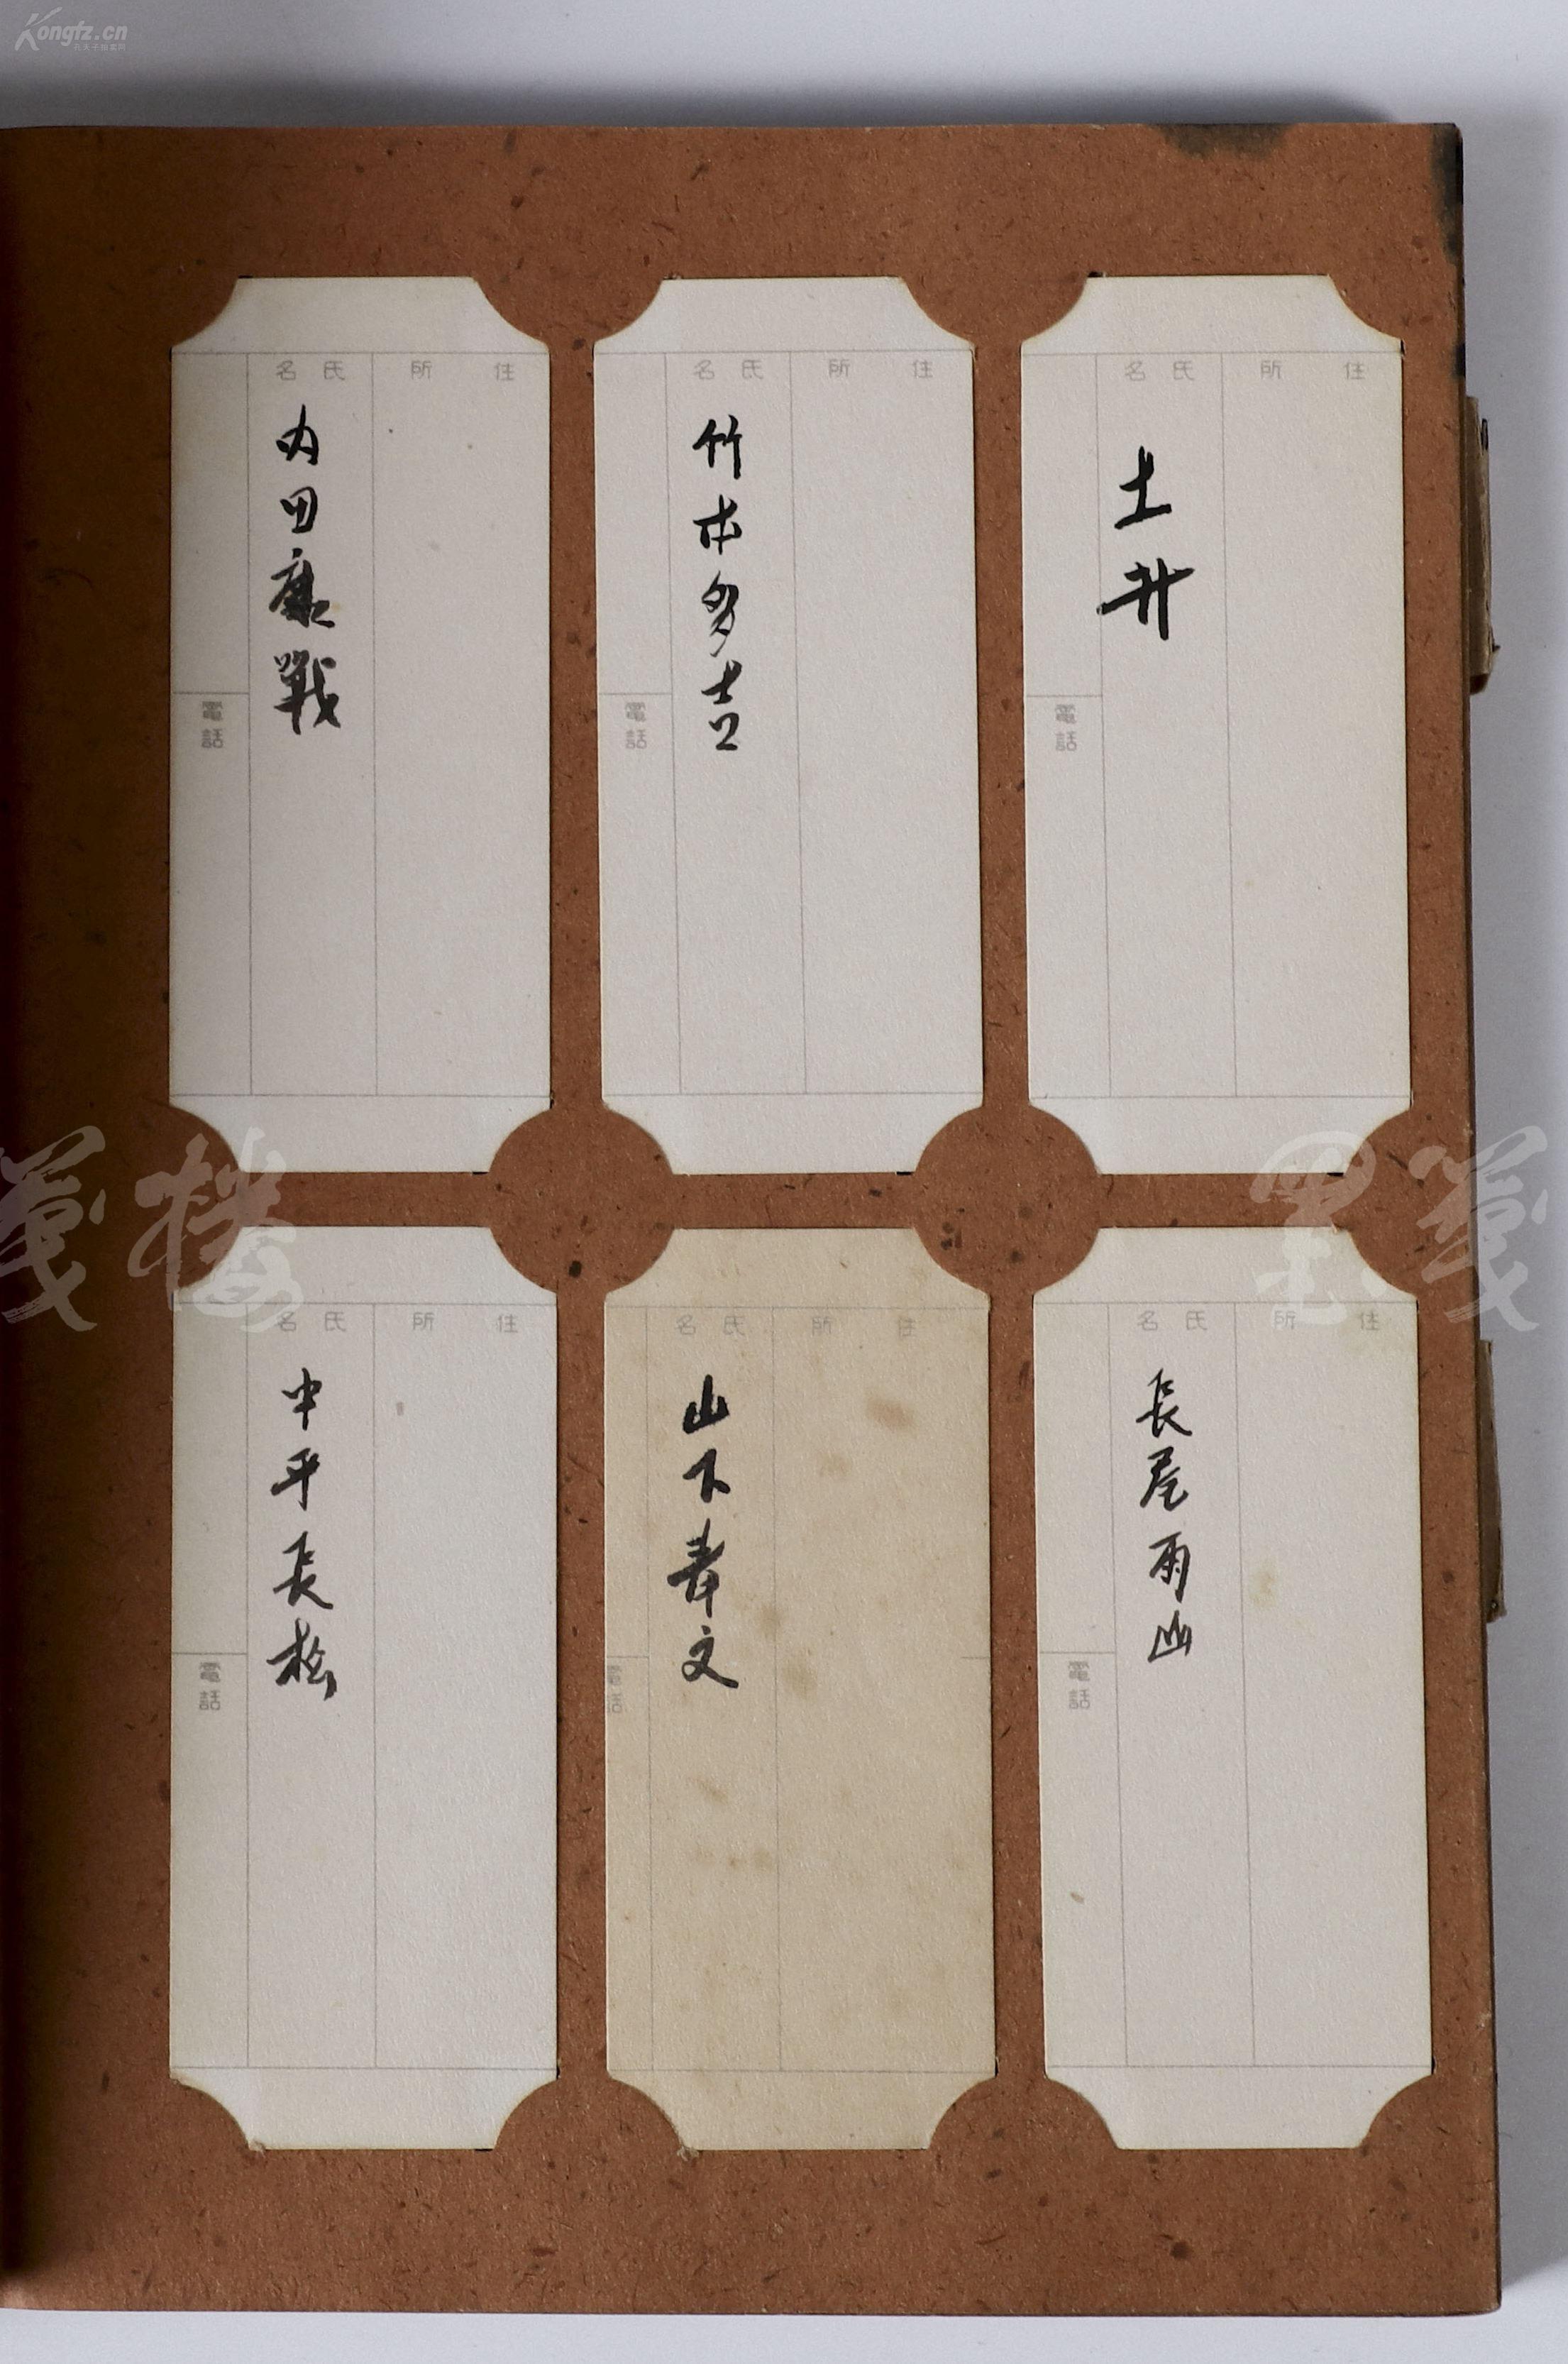 Kongfz.cn
孔夫子拍卖网
住所
氏名
土井
電話
住所
氏名
竹本多吉
電話
住所
氏名
内田康戰
電話
住所
氏名
長尾雨山
電話
住所
氏名
山下寿文
電話
住所
氏名
中平長松
電話
墨箋
箋楼